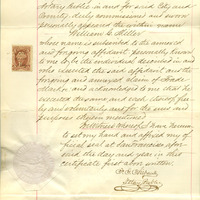 Notary Public in and for said City and
County, duly commissioned and sworn
personally appeared the within named
William C. Miller
whose name is subscribed to the annexed
and foregoing affidavit personally known
to me to be the individual described in and
who executed the said affidavit and the
foregoing and annexed claim of Trade
Mark and acknowledged to me that he
executed the same and each thereof freely
and voluntarily and for the uses and
purposes therein mentioned
In Witness Whereof I have hereunto
set my hand and affixed my official
seal at San Francisco
the day and year in this
certificate first above written
Notary Public